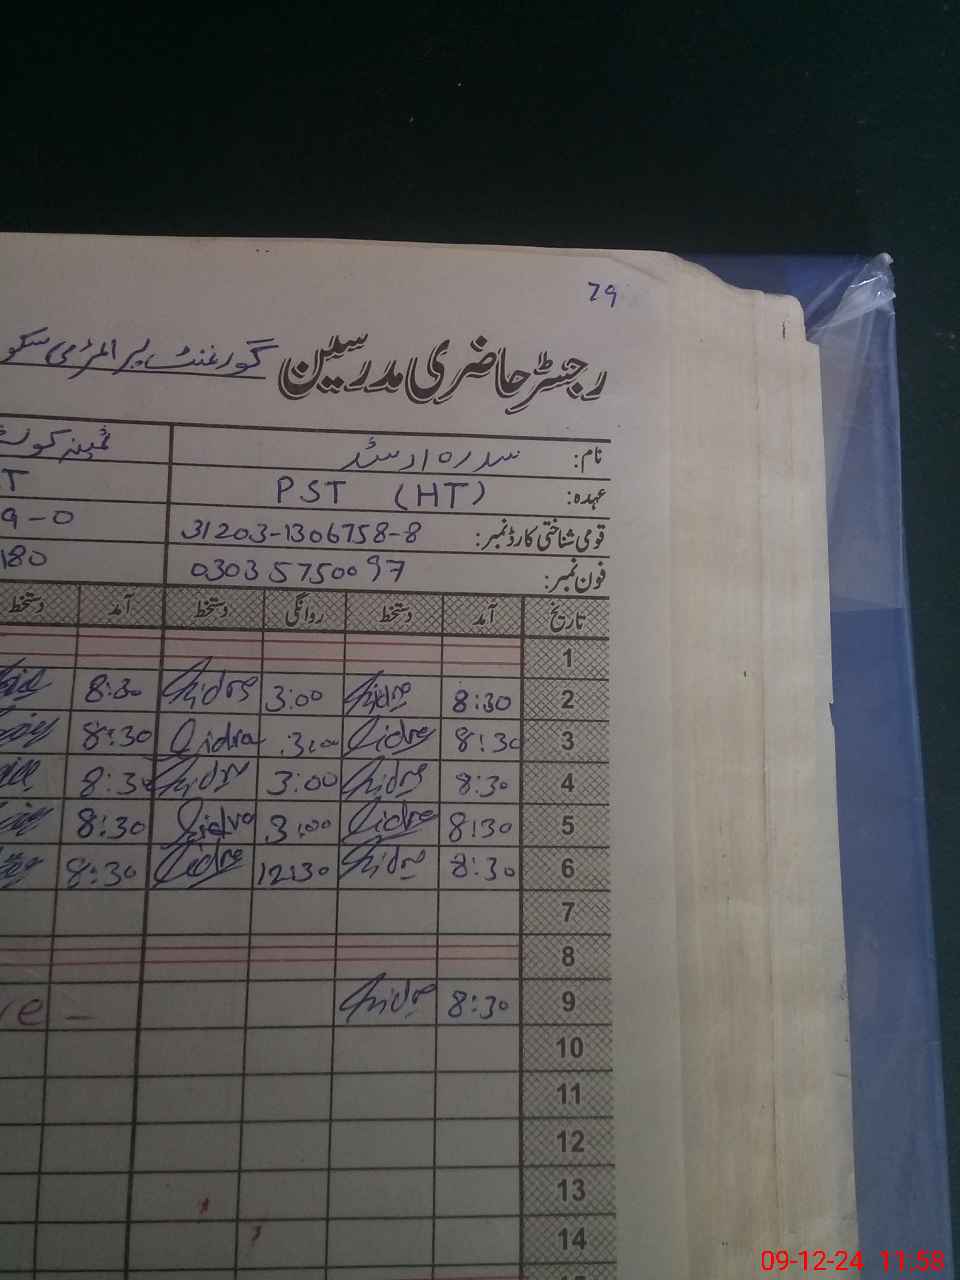 79
رجسٹر حاضری مدرسین گورنمنٹ پرائمری سکو
نام: سدرہ ارشد
عہدہ: PST (HT) T
قومی شناختی کارڈ نمبر: 31203-1306758-8 9-0
فون نمبر: 03035750097 180
تاریخ آمد دستخط روانگی دستخط آمد دستخط
1
2 8:30 Sidra 3:00 Sidra 8:30
3 8:30 Sidra 3:00 Sidra 8:30
4 8:30 Sidra 3:00 Sidra 8:30
5 8:30 Sidra 3:00 Sidra 8:30
6 8:30 Sidra 12:30 Sidra 8:30
7
8
9 8:30 Sidra
10
11
12
13
14
09-12-24 11:58